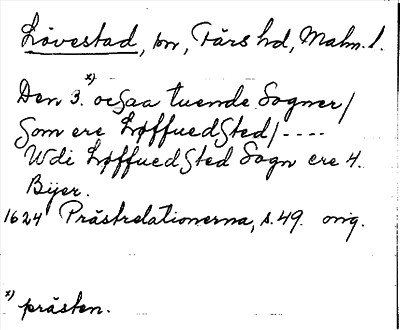 Lövestad, sn, Färs hd, Malm. l.
Den 3. x) ocsaa tuende Sogner/
Som ere LøffuedSted/ ----
Wdi LøffuedSted Sogn ere 4.
Bijer.
1624 Prästrelationerna, s. 49. orig.
x) prästen.